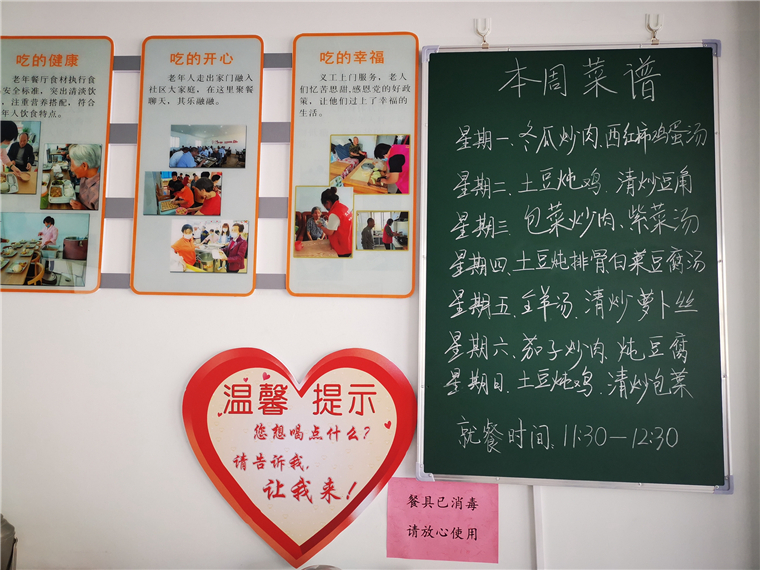 吃的健康
老年餐厅食材执行食
安全标准，突出清淡饮
，注重营养搭配，符合
年人饮食特点。
吃的开心
老年人走出家门融入
社区大家庭，在这里聚餐
聊天，其乐融融。
吃的幸福
义工上门服务，老人
们忆苦思甜,感恩党的好政
策，让他们过上了幸福的
生活。
本周菜谱
星期一、冬瓜炒肉、西红柿鸡蛋汤
星期二、土豆炖鸡、清炒豆角
星期三 包菜炒肉、紫菜汤
星期四、土豆炖排骨白菜豆腐汤
星期五、全羊汤、清炒萝卜丝
星期六、茄子炒肉、炖豆腐
星期日、土豆炖鸡、清炒包菜
就餐时间、11:30—12:30
温馨 提示
您想喝点什么？
请告诉我,
让我来！
餐具已消毒
请放心使用